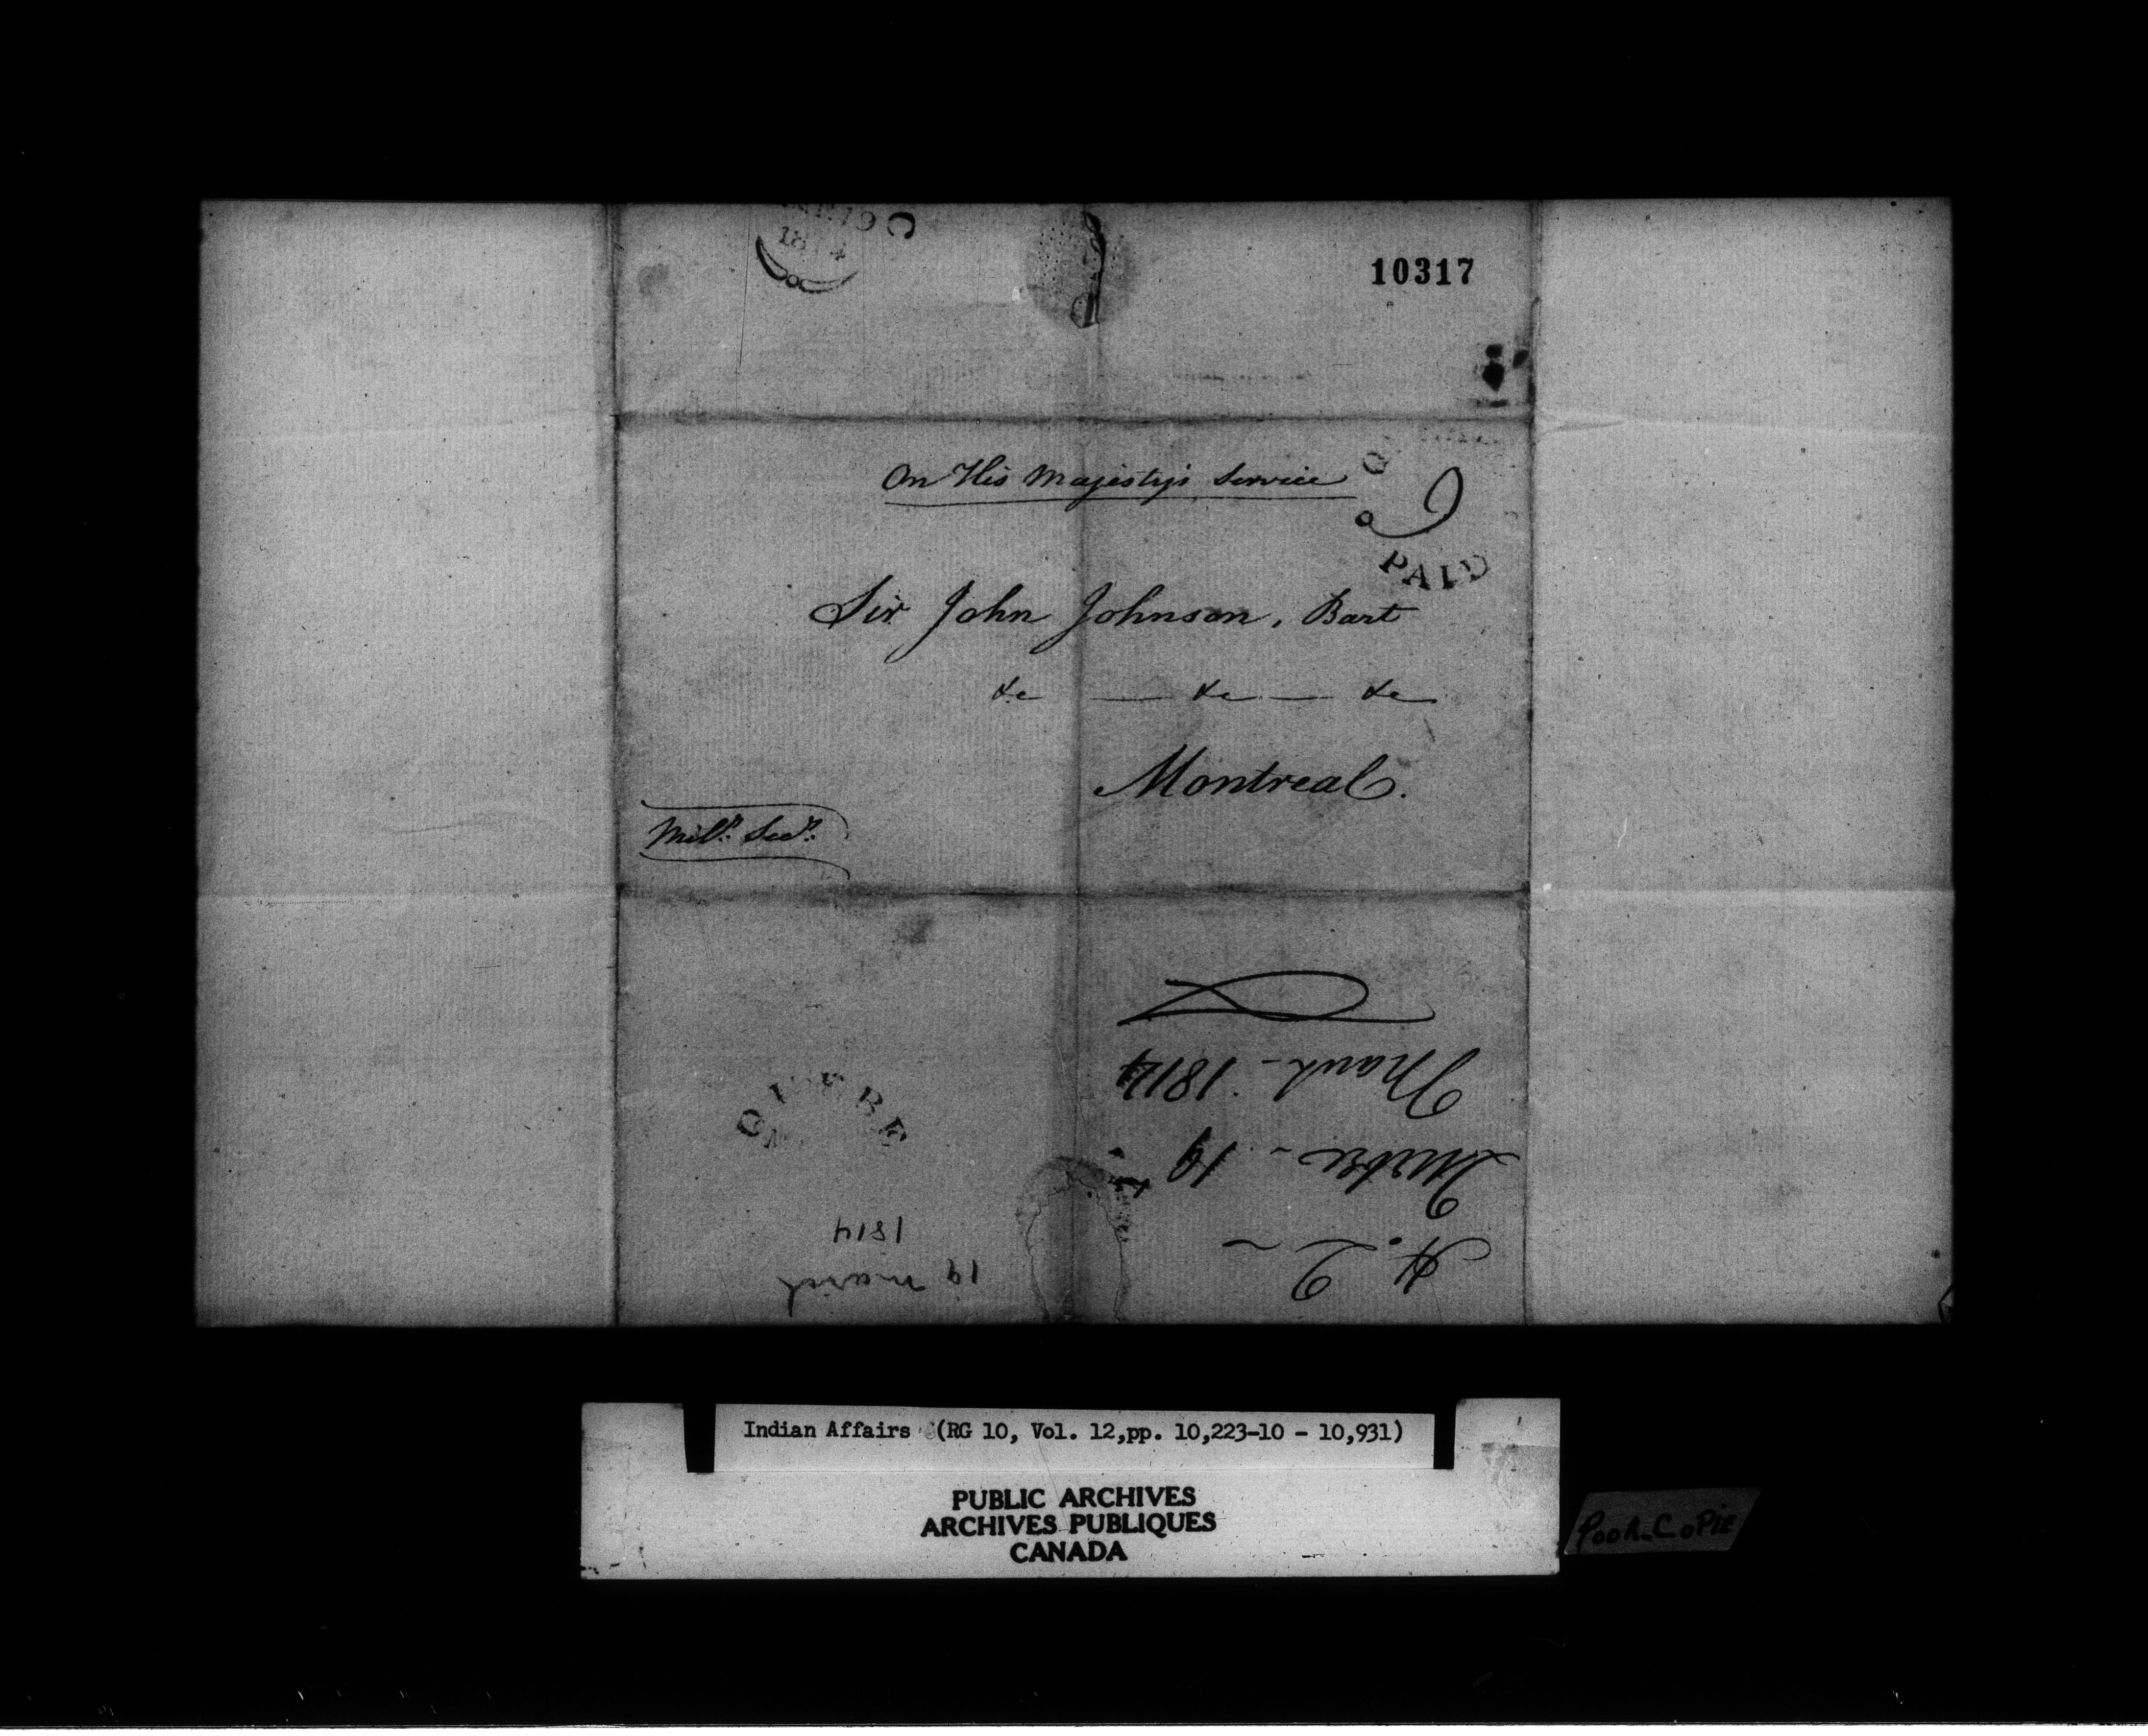 19 C
1814
10317
On His Majesty's Service
9
PAID
Sir John Johnson, Bart
&c — &c — &c
Montreal.
Mily. Secy.
QUEBE
H. Q —
Quebec - 19
March - 1814
19 march
1814
Indian Affairs (RG 10, Vol. 12,pp. 10,223-10 - 10,931)
PUBLIC ARCHIVES
ARCHIVES PUBLIQUES
CANADA
POOR COPIE